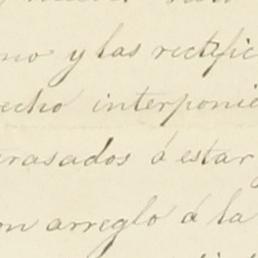 no y las rectific
echo interponie
rasados á estar
on arreglo á la